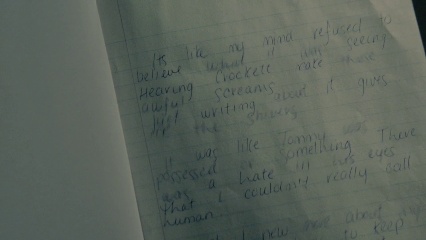 Its like my mind refused to
believe what it was seeing
Hearing Crockett make those
awful screams
Just writing about it gives
me the shivers
It was like Tommy was
possessed or something There
was a hate in his eyes
that I couldn't really call
human
I knew more about
to keep